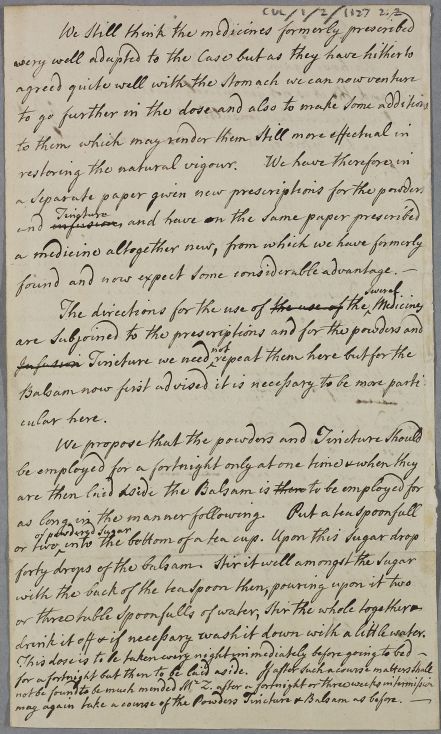 CUL/1/2/1127 2.2
We Still think the medicines formerly prescribed
very well adapted to the Case but as they have hitherto
agreed quite well with the Stomach we can now venture
to go further in the dose and also to make Some additions
to them which may render them Still more effectual in
restoring the natural vigour. We have therefore in
a Separate paper given new prescriptions for the powders
Tincture
and infusion, and have on the Same paper prescribed
a medicine altogether new, from which we have formerly
found and now expect Some considerable advantage. —
Several
The directions for the use of the use of the Medicines
are Subjoined to the prescriptions and for the powders and
not
Infusion Tincture we need repeat them here but for the
Balsam now first advised it is necessary to be more parti
cular here.
We propose that the powders and Tincture Should
be employed for a fortnight only at one time & when they
are then laid aside the Balsam is then to be employed for
as long in the manner following. Put a teaspoonfull
of powdered Sugar
or two into the bottom of a tea cup. Upon this Sugar drop
forty drops of the balsam. Stir it well amongst the Sugar
with the back of the teaspoon then, pouring upon it two
or three table Spoonfulls of water, Stir the whole together &
drink it off & if necessary wash it down with a little water.
This dose is to be taken every night immediately before going to bed —
for a fortnight but then to be laid aside. If after such a course matters shall
not be found to be much mended Mr Z. after a fortnight or three weeks intermission
may again take a course of the Powders Tincture & Balsam as before. —